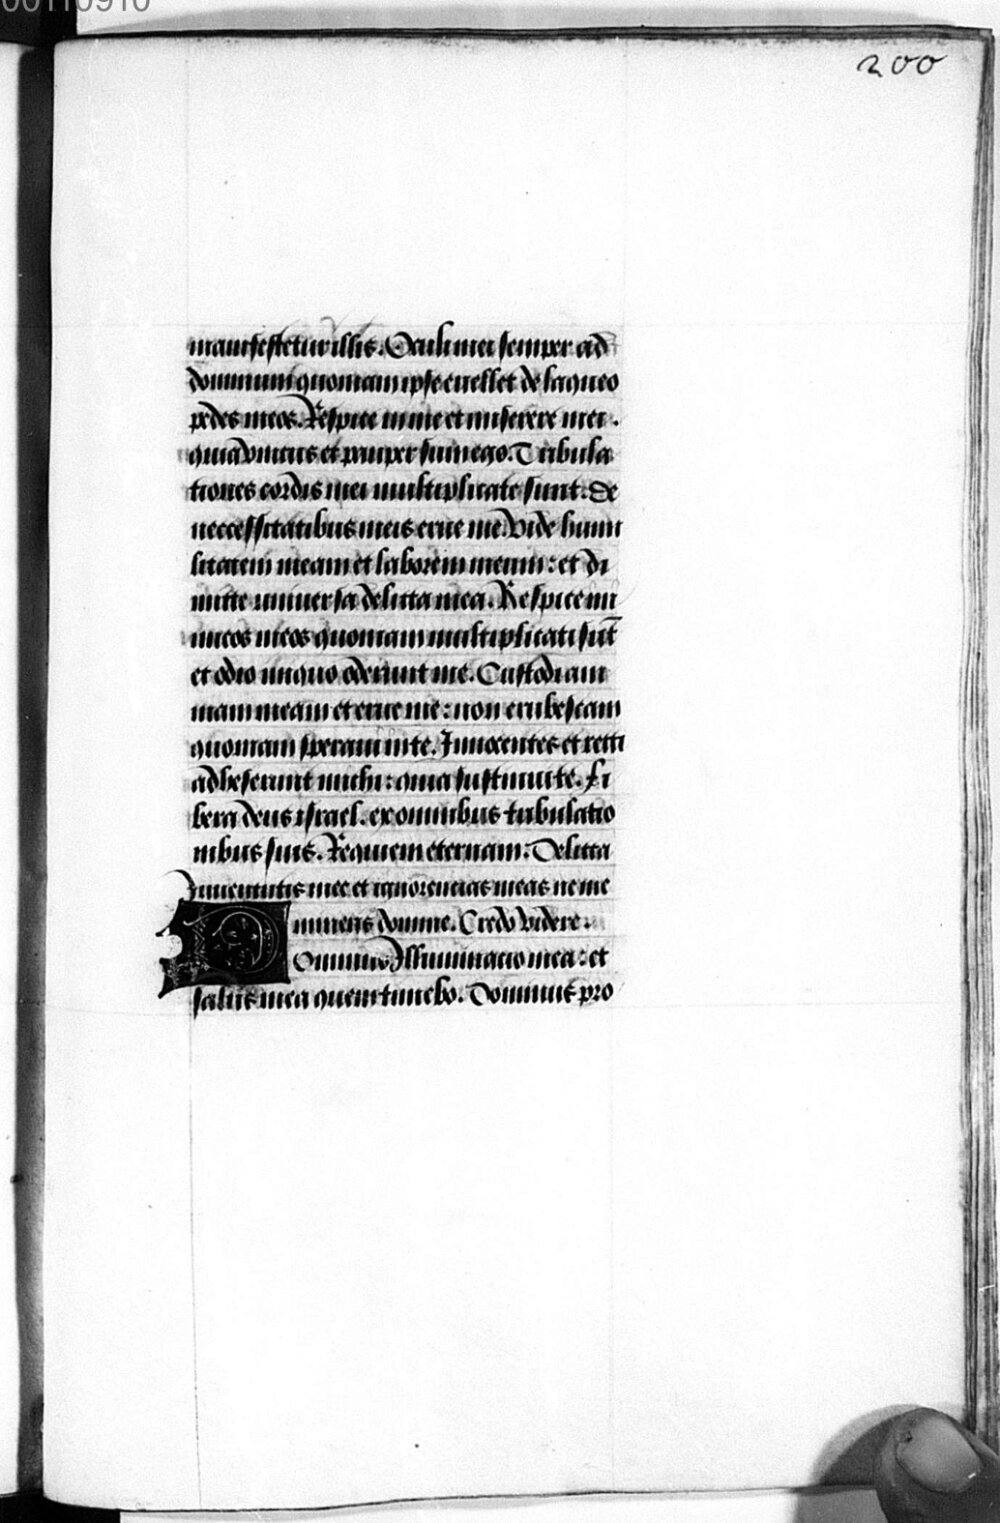 00110910
200
manifestetur illis. Oculi mei semper ad
dominum quoniam ipse euellet de laqueo
pedes meos. Respice in me et miserere mei.
quia vnicus et pauper sum ego. Tribula
tiones cordis mei multiplicate sunt: de
necessitatibus meis erue me. Vide humi
litatem meam et laborem meum: et di
mitte uniuersa delicta mea. Respice ini
micos meos quoniam multiplicati sūt
et odio iniquo oderunt me. Custodi ani
mam meam et erue me: non erubescam
quoniam speraui in te. Innocentes et recti
adheserunt michi: quia sustinui te. Li
bera deus israel. ex omnibus tribulatio
nibus suis. Requiem eternam. Delicta
Iuuentutis mee et ignorencias meas ne me
mineris domine. Credo videre.
Dominus Illuminacio mea: et
salus mea quem timebo. Dominus pro